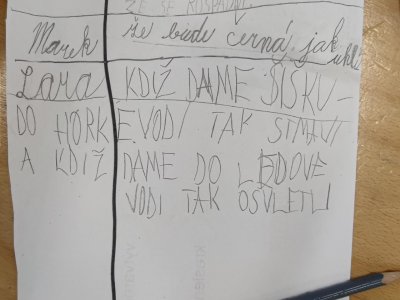 ŽE SE ROSPADNE
Marek že bude černá jak uhlí
Lara KDIŽ DÁME ŠIŠKU-
DO HORKÉ VODI TAK STMAVÍ
A KDIŽ DÁME DO LEDOVÉ
VODI TAK OSVĚTLÍ